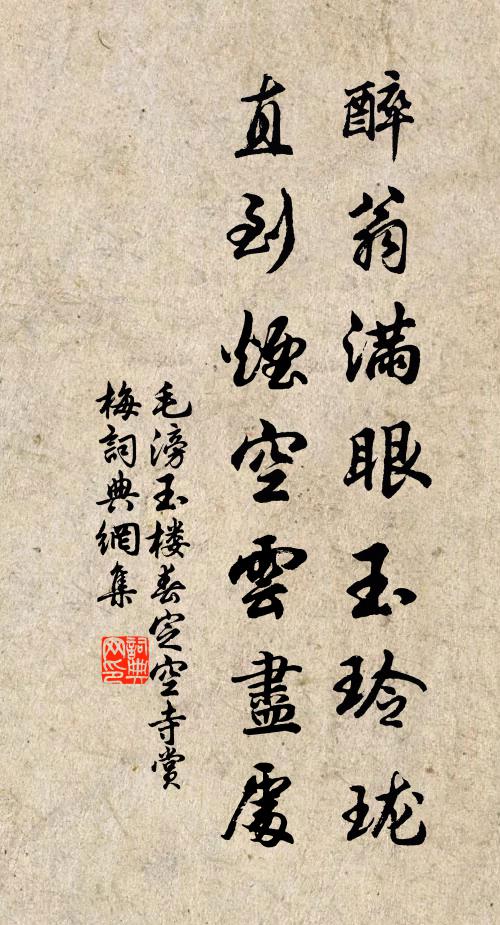 醉翁滿眼玉玲珑
直到煙空雲盡處
毛滂玉楼春定空寺赏
梅詞典網集
詞典
网印